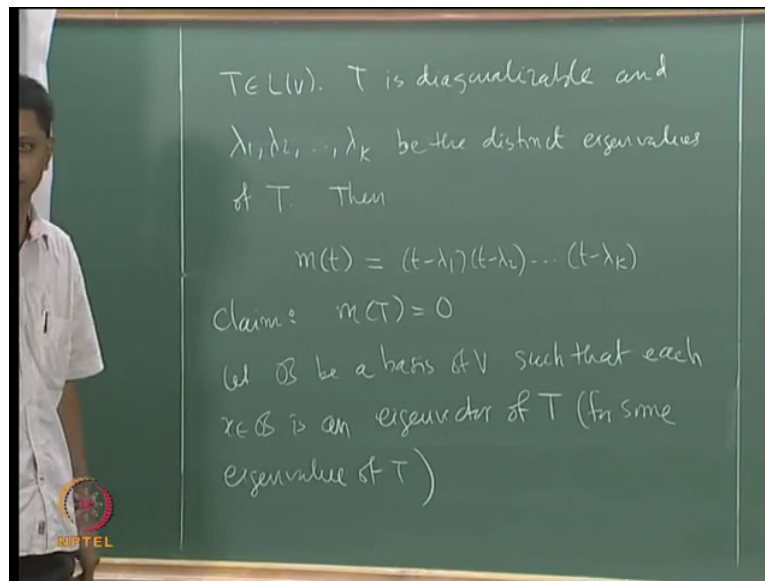 T ∈ L(V). T is diagonalizable and
λ1, λ2, ..., λk be the distinct eigenvalues
of T. Then
m(t) = (t-λ1)(t-λ2) ... (t-λk)
Claim: m(T) = 0
Let ℬ be a basis of V such that each
x ∈ ℬ is an eigenvector of T (for some
eigenvalue of T)
NPTEL